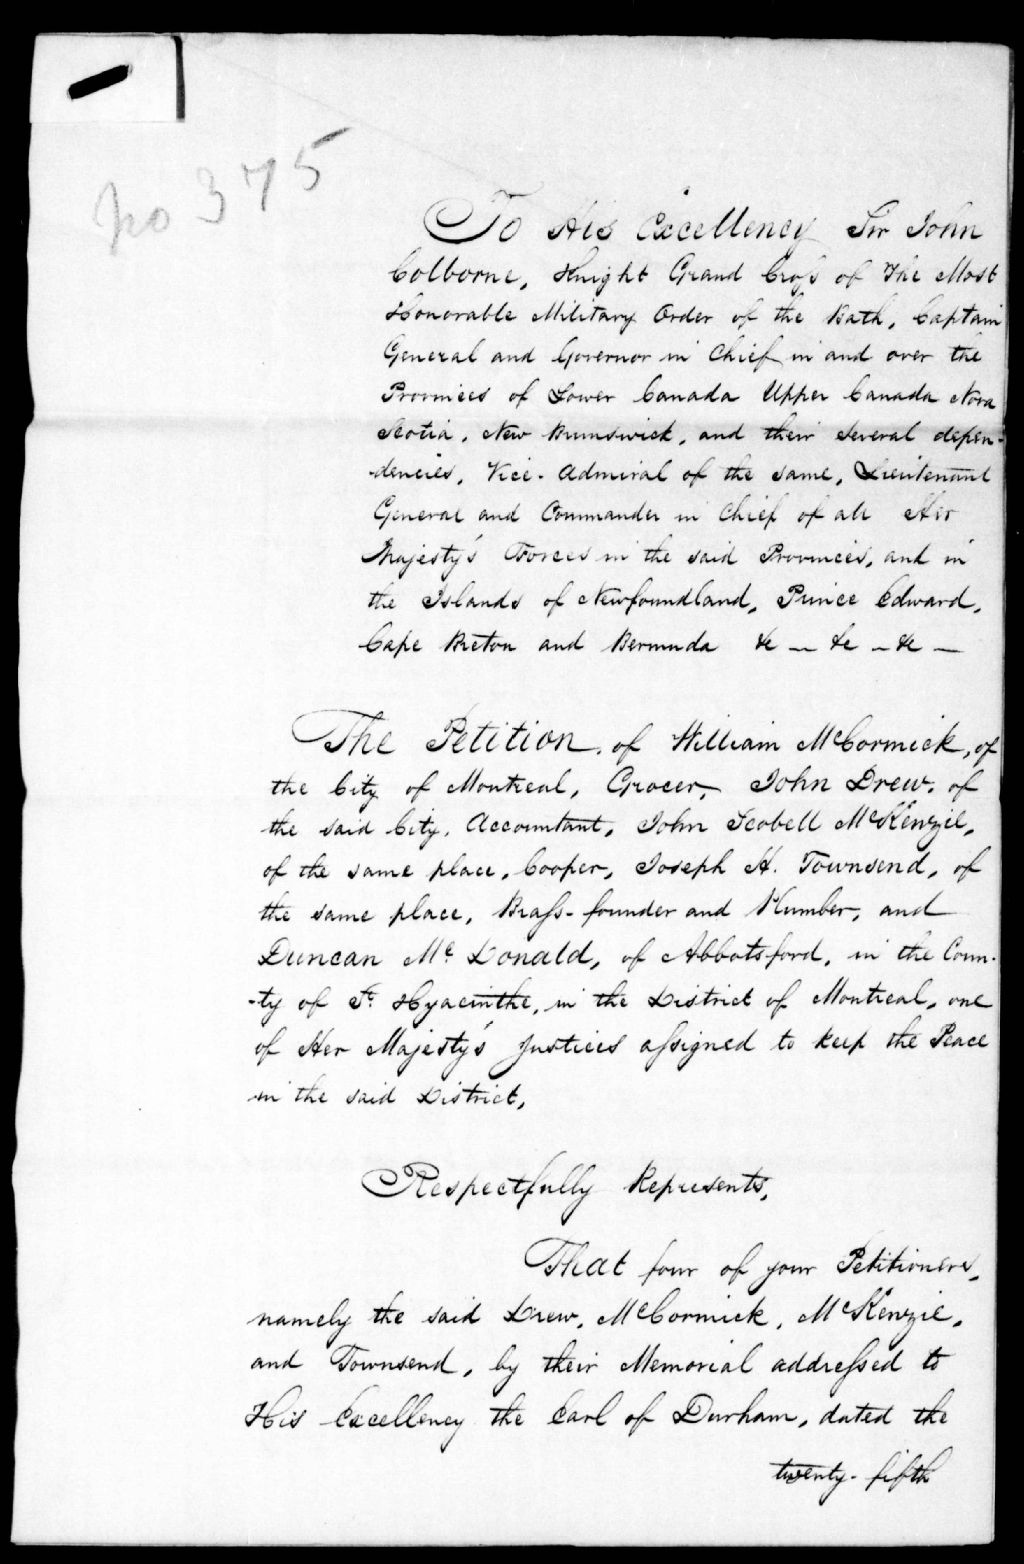 No 375
To His Excellency Sir John
Colborne, Knight Grand Cross of The Most
Honorable Military Order of the Bath, Captain
General and Governor in Chief in and over the
Provinces of Lower Canada Upper Canada Nova
Scotia, New Brunswick, and their several depen-
-dencies, Vice-Admiral of the same, Lieutenant
General and Commander in Chief of all Her
Majesty's Forces in the said Provinces, and in
the Islands of Newfoundland, Prince Edward,
Cape Breton and Bermuda &c — &c — &c —
The Petition, of William McCormick, of
the City of Montreal, Grocer, John Drew, of
the said City, Accountant, John Scobell McKenzie,
of the same place, Cooper, Joseph H. Townsend, of
the same place, Brass-founder and Plumber, and
Duncan Mc Donald, of Abbotsford, in the Coun-
-ty of St Hyacinthe, in the District of Montreal, one
of Her Majesty's Justices assigned to keep the Peace
in the said District,
Respectfully Represents,
That four of your Petitioners,
namely the said Drew, McCormick, McKenzie,
and Townsend, by their Memorial addressed to
His Excellency the Earl of Durham, dated the
twenty-fifth